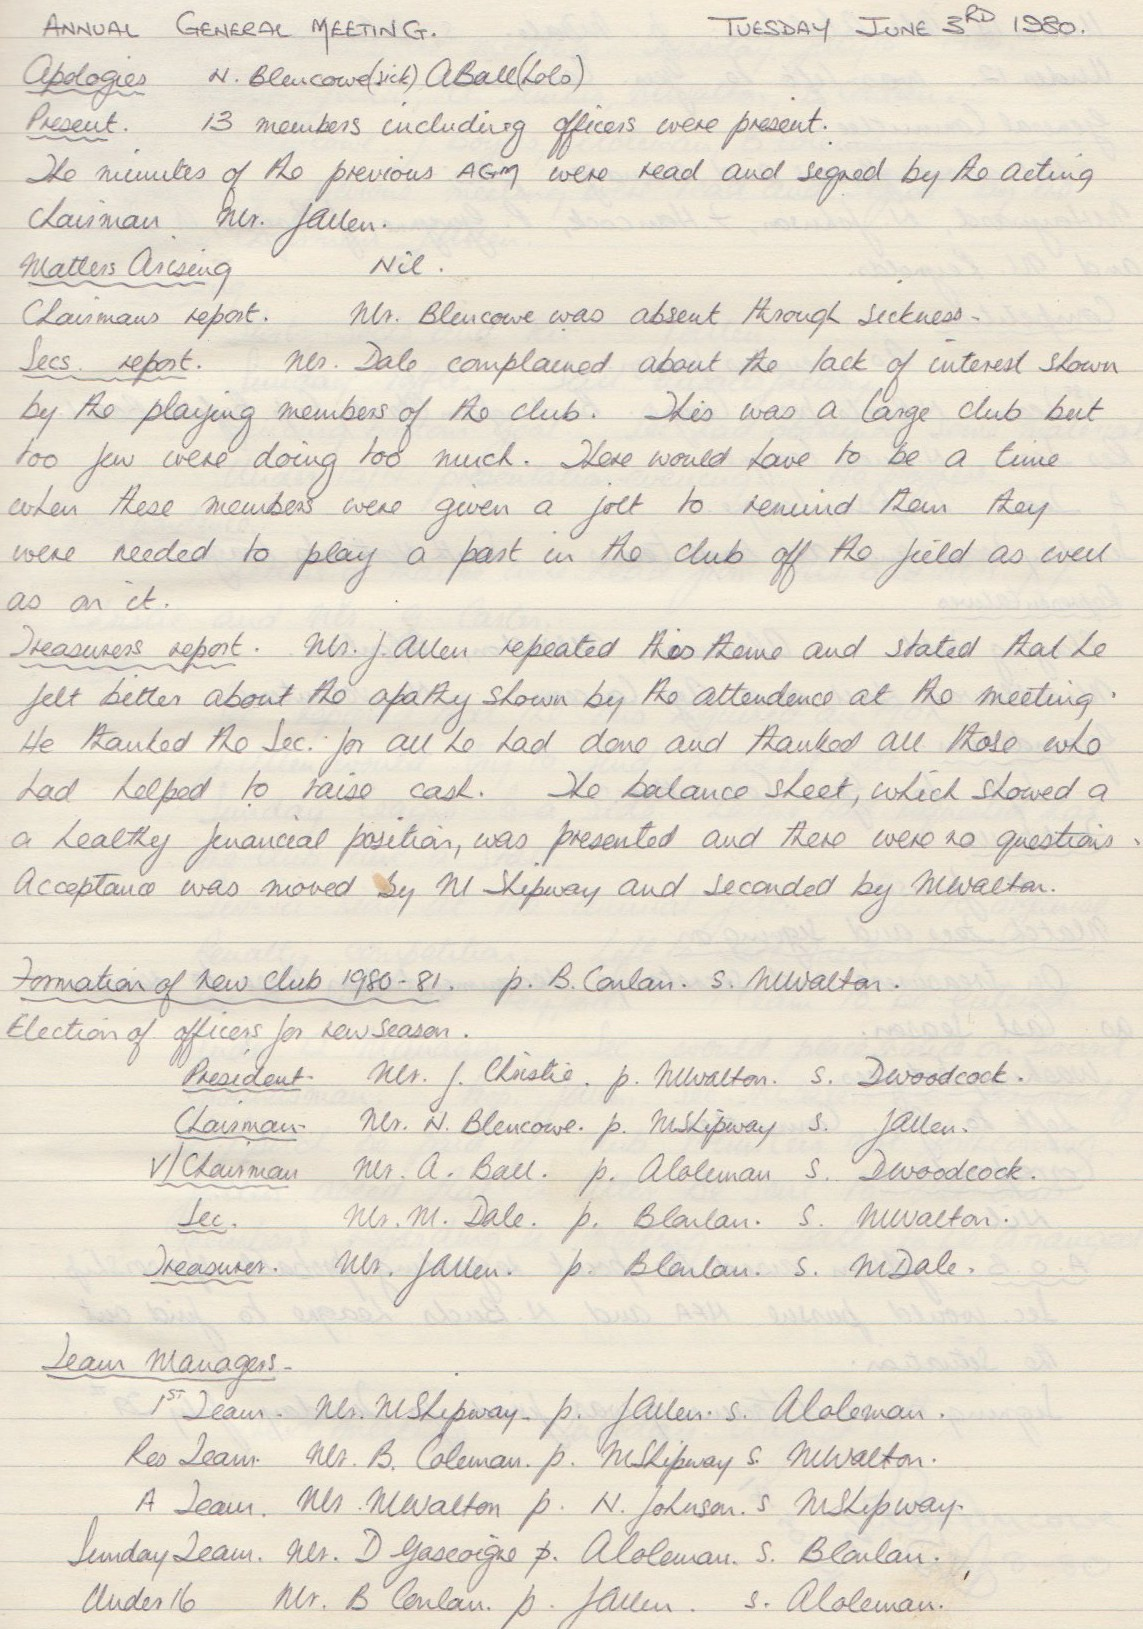 ANNUAL GENERAL MEETING. TUESDAY JUNE 3RD 1980.
Apologies N. Blencowe (sick) A Ball (hols)
Present. 13 members including officers were present.
The minutes of the previous AGM were read and signed by the acting
chairman Mr. J Allen.
Matters Arising Nil.
Chairmans report. Mr. Blencowe was absent through sickness.
Secs. report. Mr. Dale complained about the lack of interest shown
by the playing members of the club. This was a large club but
too few were doing too much. There would have to be a time
when these members were given a jolt to remind them they
were needed to play a part in the club off the field as well
as on it.
Treasurers report. Mr. J. Allen repeated this theme and stated that he
felt better about the apathy shown by the attendence at the meeting.
He thanked the Sec. for all he had done and thanked all those who
had helped to raise cash. The balance sheet, which showed a
a healthy financial position, was presented and there were no questions.
Acceptance was moved by M Shipway and seconded by M Walton.
Formation of new club 1980-81. p. B. Conlan. s. M Walton.
Election of officers for new season.
President Mr. J. Christie. p. M Walton. s. D Woodcock.
Chairman Mr. N. Blencowe. p. M Shipway s. J Allen.
V/Chairman Mr. A. Ball. p. A Coleman s. D Woodcock.
Sec. Mr. M. Dale. p. B Conlan. s. M Walton.
Treasurer. Mr. J Allen. p. B Conlan. s. M Dale.
Team Managers.
1ST Team. Mr. M Shipway. p. J Allen. s. A Coleman.
Res Team. Mr. B. Coleman. p. M Shipway s. M Walton.
A Team. Mr. M Walton p. N. Johnson. s M Shipway.
Sunday Team. Mr. D Gascoigne p. A Coleman. s. B Conlan.
Under 16 Mr. B Conlan. p. J Allen. s. A Coleman.